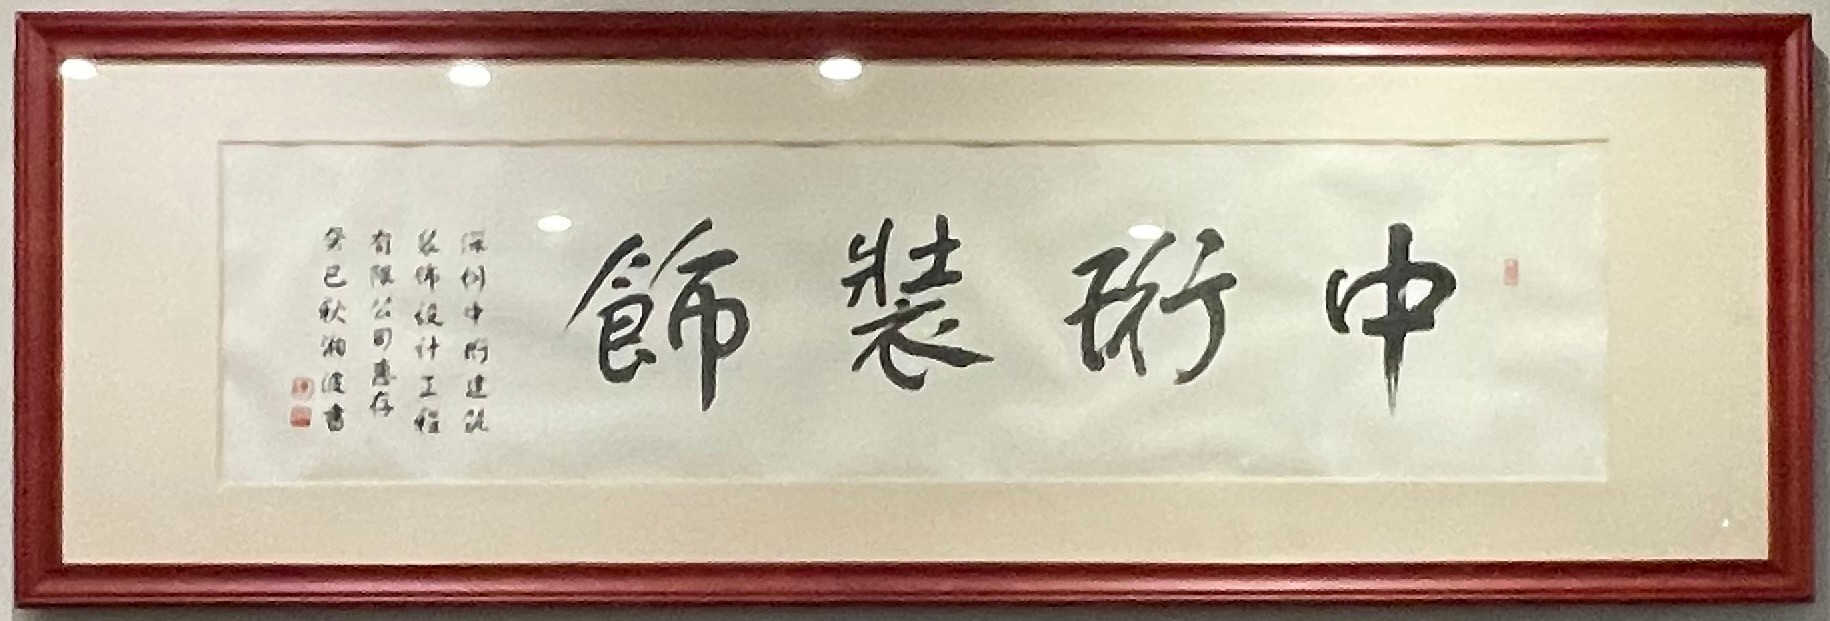 中珩裝飾
深圳中珩建筑
装饰设计工程
有限公司惠存
癸巳秋湘波書